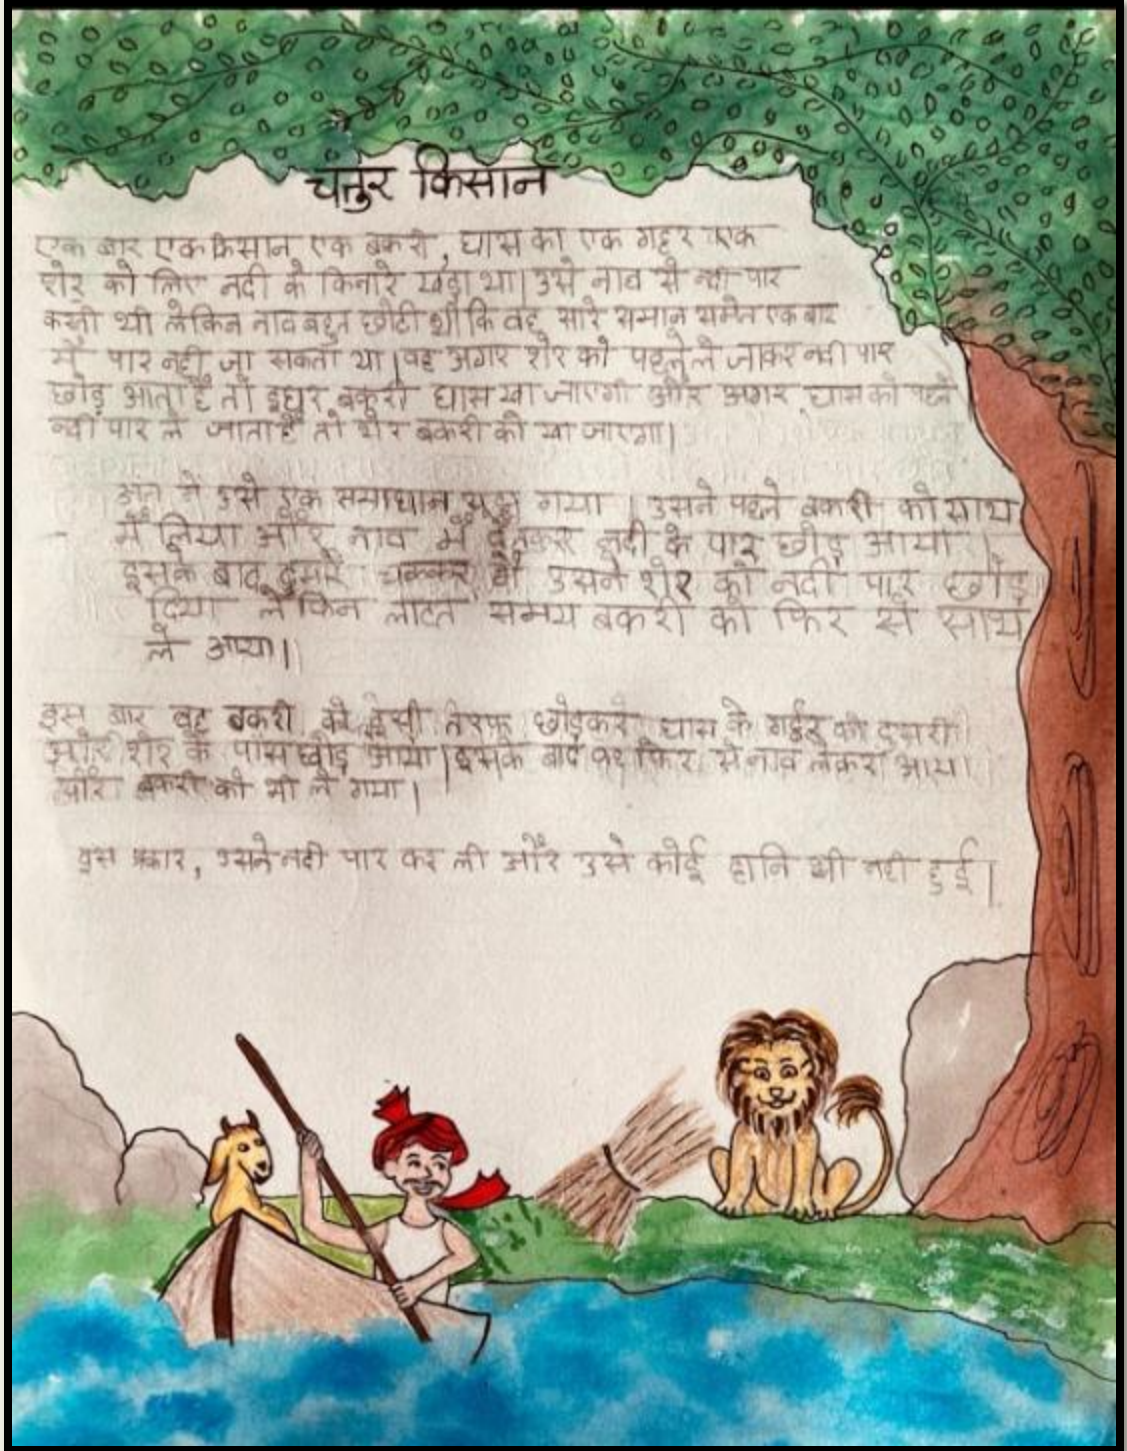 चतुर किसान
एक बार एक किसान एक बकरी, घास का एक गट्ठर एक
शेर को लिए नदी के किनारे खड़ा था। उसे नाव से नदी पार
करनी थी लेकिन नाव बहुत छोटी थी कि वह सारे समान समेत एक बार
में पार नही जा सकता था। वह अगर शेर को पहले ले जाकर नदी पार
छोड़ आता है तो इधर बकरी घास खा जाएगी और अगर घास को पहले
नदी पार ले जाता है तो शेर बकरी को खा जाएगा।
अंत में उसे एक समाधान सूझ गया । उसने पहले बकरी को साथ
में लिया और नाव में बैठकर नदी के पार छोड़ आया।
इसके बाद दुसरे चक्कर में उसने शेर को नदी पार छोड़
दिया लेकिन लौटते समय बकरी को फिर से साथ
ले आया।
इस बार वह बकरी को इसी तरफ छोड़कर घास के गट्ठर को दूसरी
ओर शेर के पास छोड़ आया। इसके बाद वह फिर से नाव लेकर आया
और बकरी को भी ले गया।
इस प्रकार, उसने नदी पार कर ली और उसे कोई हानि भी नही हुई।